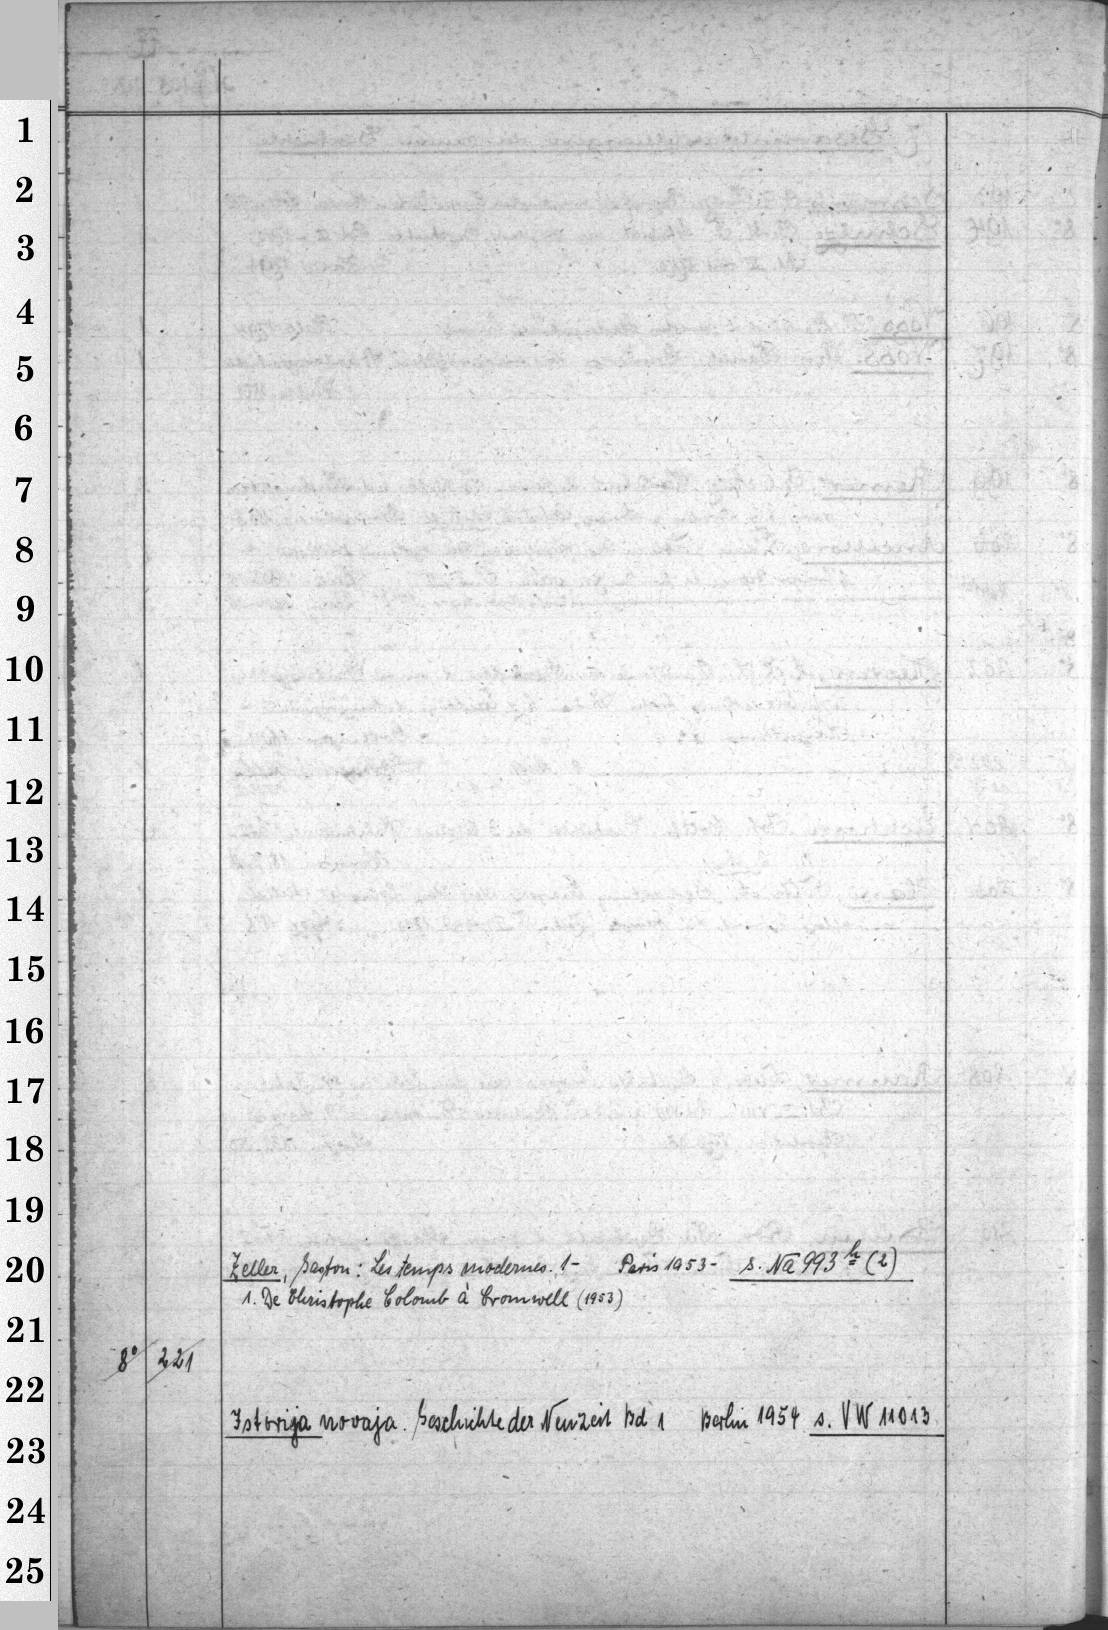 1
2
3
4
5
6
7
8
9
10
11
12
13
14
15
16
17
18
19
20
21
22
23
24
25
Zeller, Gaston: Les temps modernes. 1- Paris 1953- s. Na 993 (2)
1. De Christophe Colomb à Cromwell (1953)
8° 221
Istorija novaja. Geschichte der Neuzeit Bd 1 Berlin 1954 s. VW 11013